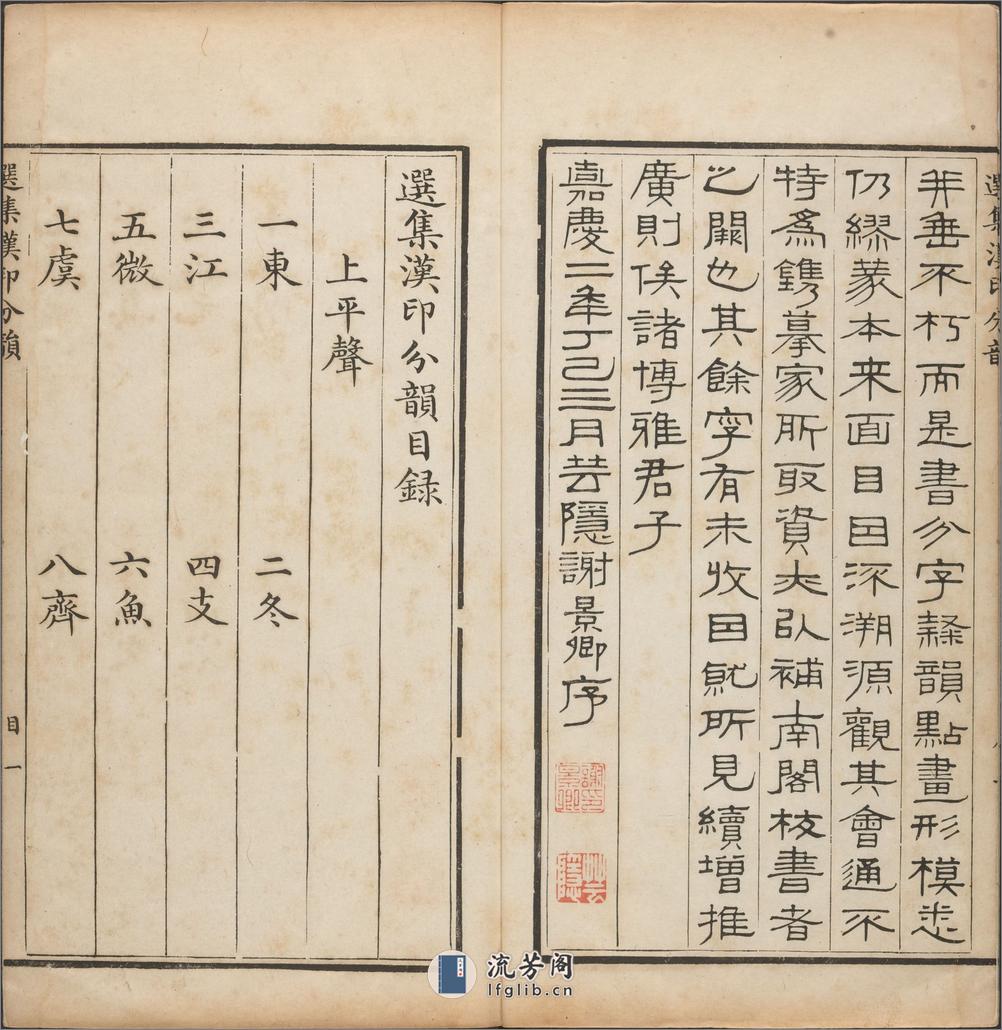 選集漢印分韻
并垂不朽而是書分字隸韻點畫形模悉
仍繆篆本来面目因沂溯源觀其會通不
特為鐫摹家所取資夫以補南閣校書者
之闕也其餘字有未收因就所見續增推
廣則俟諸博雅君子
嘉慶二年丁巳三月芸隱謝景卿序
謝景卿印
芸隱
選集漢印分韻目録
上平聲
一東 二冬
三江 四支
五微 六魚
七虞 八齊
選集漢印分韻
目一
流芳阁
lfglib.cn